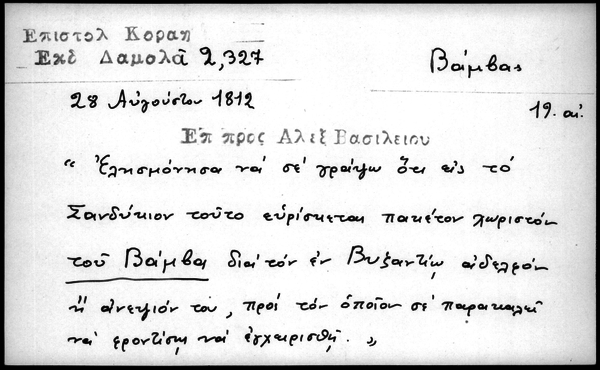 Επιστολ Κοραη
Εκδ Δαμαλᾶ 2,327
Βάμβας
28 Αὐγούστου 1812
19. αἰ.
Επ προς Αλεξ Βασιλειου
" Ἐλησμόνησα νά σέ γράψω ὅτι εἰς τό
Σανδύκιον τοῦτο εὑρίσκεται πακέτον χωριστόν
τοῦ Βάμβα διά τόν ἐν Βυζαντίῳ ἀδελφόν
ἤ ἀνεψιόν του, πρός τόν ὁποῖον σέ παρακαλεῖ
νά φροντίσῃς νά ἐγχειρισθῇ. "